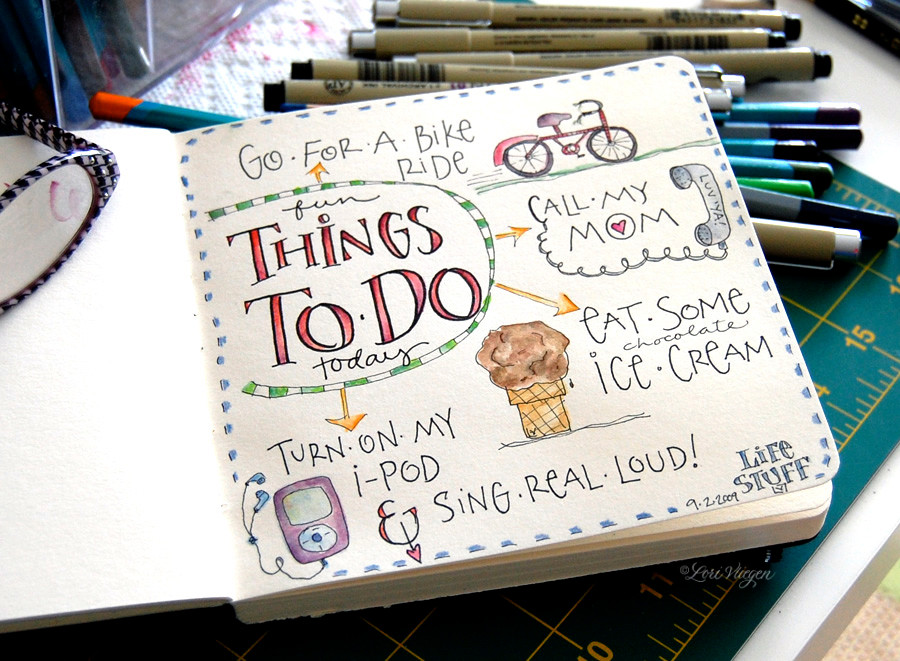 GO·FOR·A·BIKE
RIDE
fun
THINGS
TO·DO
today
CALL·MY
MOM
LUV'YA!
EAT·SOME
chocolate
ICE·CREAM
TURN·ON·MY
i-POD
& SING·REAL·LOUD!
LIFE
STUFF
9·2·2009
©Lori Vliegen
15
16
10
11